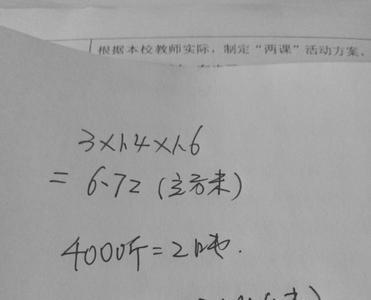 根据本校教师实际，制定“两课”活动方案、
3×1.4×1.6
=6.72（立方米）
4000斤=2吨.